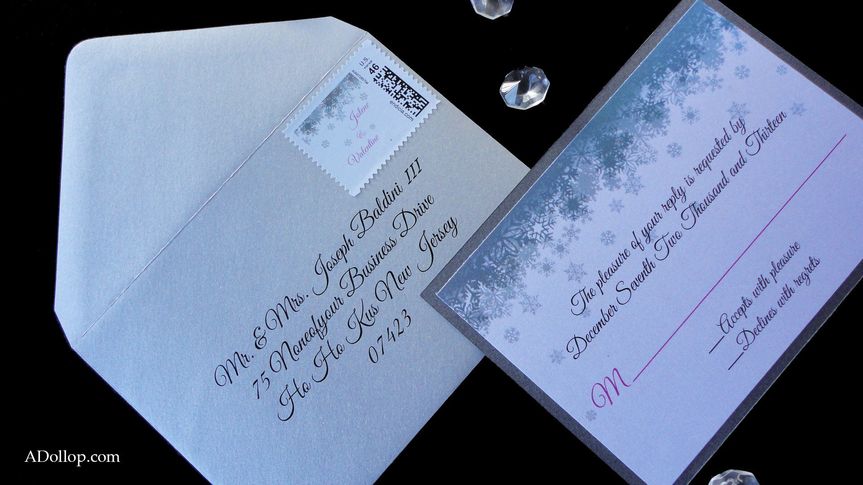 U.S. 46
endicia.com
Jolene
&
Valentine
Mr. & Mrs. Joseph Baldini III
75 Noneofyour Business Drive
Ho Ho Kus New Jersey
07423
The pleasure of your reply is requested by
December Seventh Two Thousand and Thirteen
M
Accepts with pleasure
Declines with regrets
ADollop.com